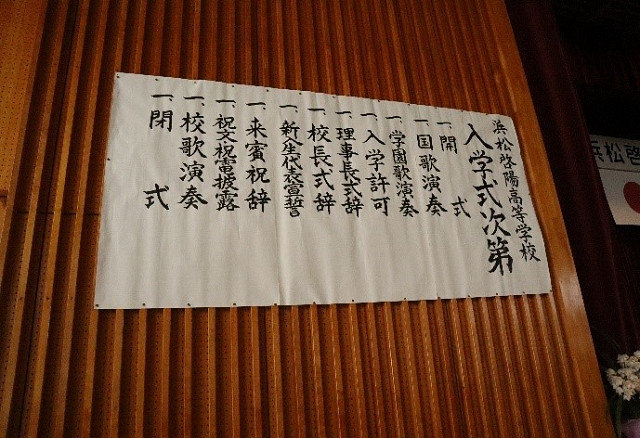 浜松啓陽高等学校
入学式次第
一、開式
一、国歌演奏
一、学園歌演奏
一、入学許可
一、理事長式辞
一、校長式辞
一、新入生代表宣誓
一、来賓祝辞
一、祝文祝電披露
一、校歌演奏
一、閉式
浜松啓